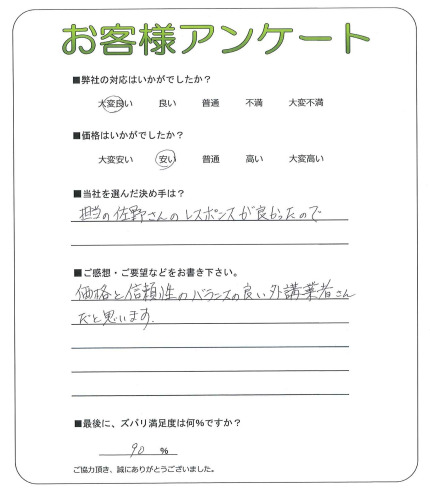 お客様アンケート
■弊社の対応はいかがでしたか？
大変良い　良い　普通　不満　大変不満
■価格はいかがでしたか？
大変安い　安い　普通　高い　大変高い
■当社を選んだ決め手は？
担当の佐野さんのレスポンスが良かったので
■ご感想・ご要望などをお書き下さい。
価格と信頼性のバランスの良い外講業者さん
だと思います.
■最後に、ズバリ満足度は何%ですか？
90 %
ご協力頂き、誠にありがとうございました。